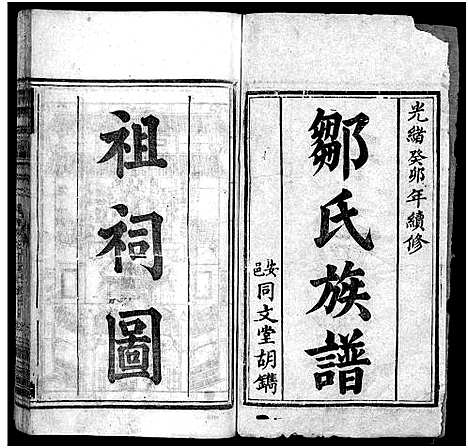 光緒癸卯年續修
鄒氏族譜
安邑同文堂胡鐫
祖祠圖